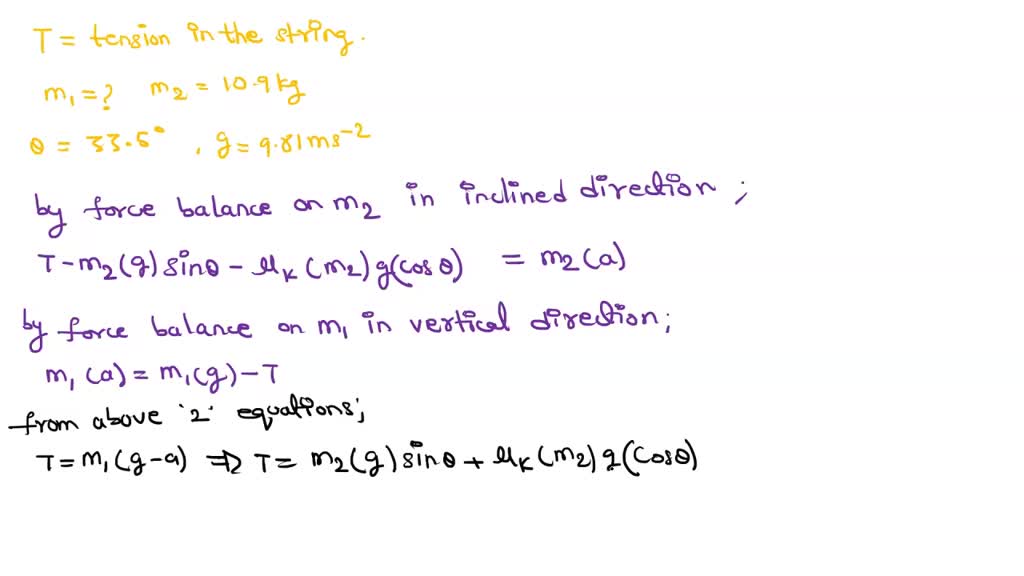 T = tension in the string.
m₁ = ? m₂ = 10.9 kg
θ = 33.5° , g = 9.81 ms⁻²
by force balance on m₂ in inclined direction ;
T - m₂(g) sinθ - μₖ(m₂) g(cos θ) = m₂(a)
by force balance on m₁ in vertical direction ;
m₁(a) = m₁(g) - T
from above '2' equations;
T = m₁(g-a) ⇒ T = m₂(g) sinθ + μₖ(m₂) g(cosθ)